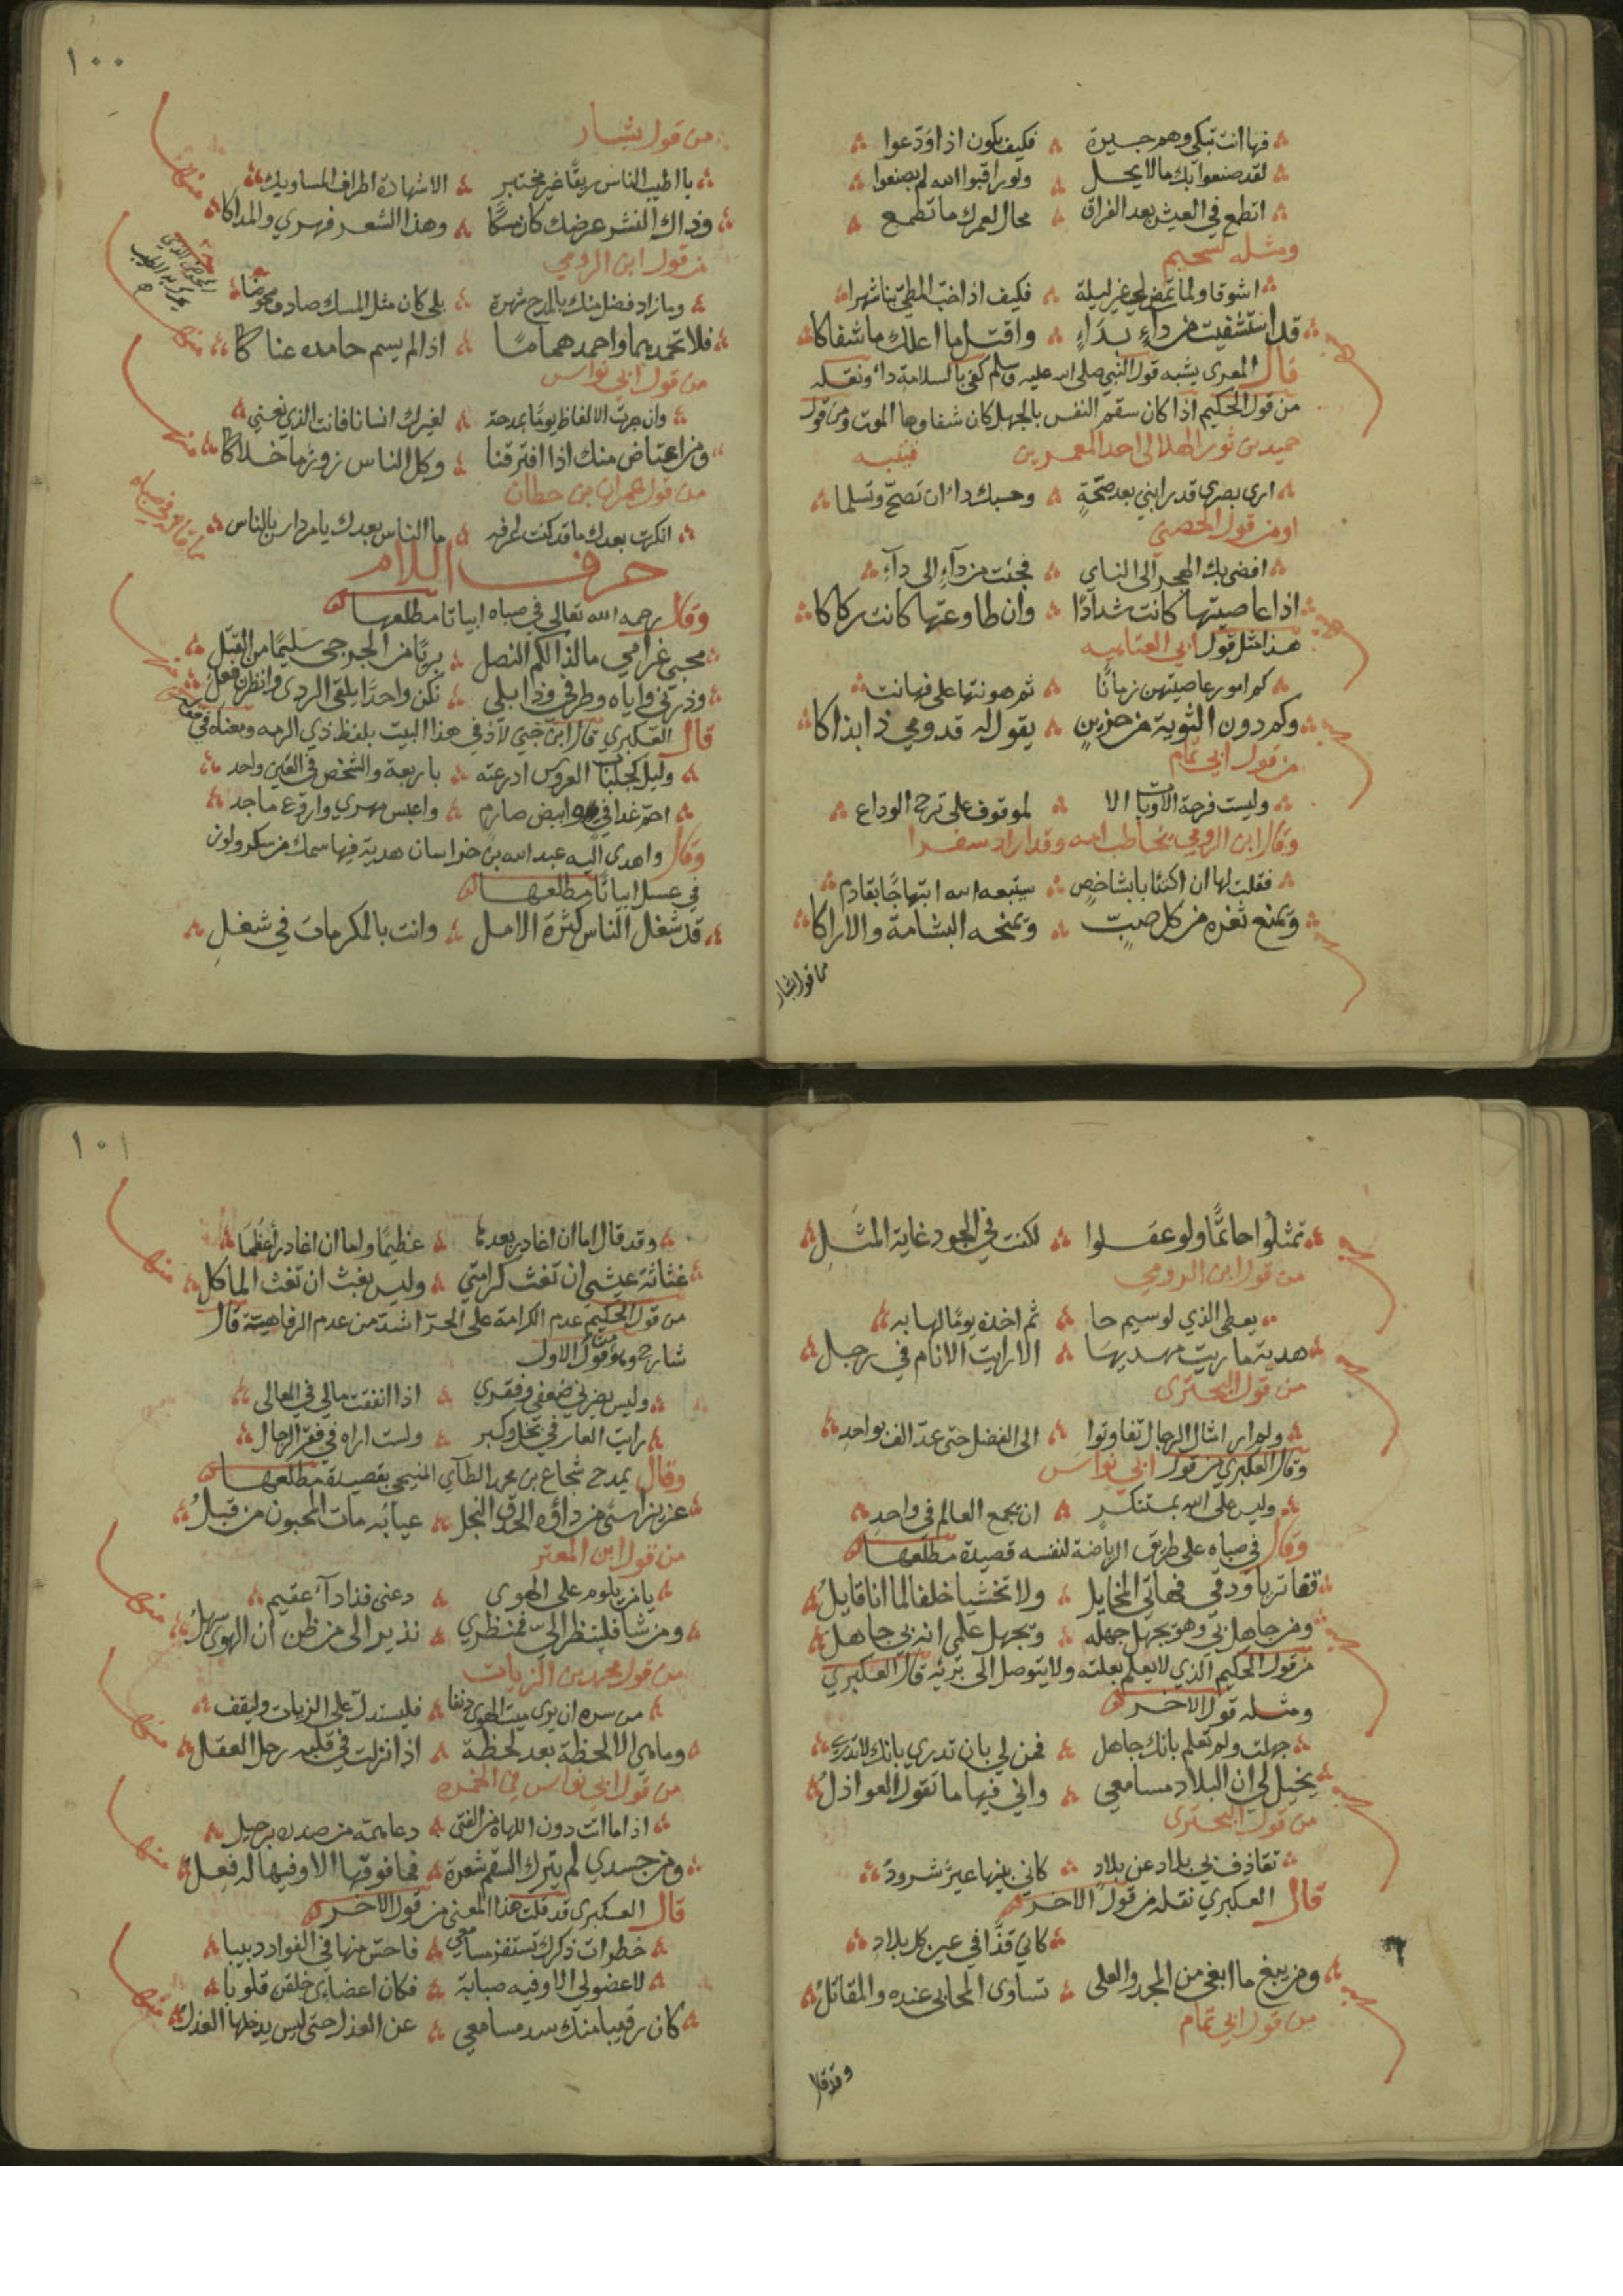 فها انت تبكي وهم جيرة ∴ فكيف يكون اذا ودّعوا
لقد صنعوا بك ما لا يحل ∴ ولو راقبوا الله لم يصنعوا
اتطمع في العيش بعد الفراق ∴ محال لعمرك ما تطمع
ومثله لسحيم
اشوقا ولما تمض لي غير ليلة ∴ فكيف اذا خبّ المطي بنا شهرا
قد استشفيت من داء بداء ∴ واقتل ما اعلك ما شفاكا
قال المعرى يشبه قول النبي صلى الله عليه وسلم كفى بالسلامة داء ونقله
من قول الحكيم اذا كان سقم النفس بالجهل كان شفاوها الموت ومن قول
حميد بن ثور الهلالى احد المعمرين
ارى بصرى قد رابني بعد صحّة ∴ وحسبك داء ان تصحّ وتسلما
او من قول الحصني
افضى بك الهجر الى الناي ∴ فجئت من داء الى داء
اذا عاصيتها كانت شدادا ∴ وان طاوعتها كانت ركاكا
هذا مثل قول ابي العتاهيه
كم امور عاصيتهن زمانا ∴ ثم هونتها على فهانت
وكم دون الثوية من حزين ∴ يقول له قدومي ذا بذاكا
من قول ابي تمام
وليست فرحة الاوبات الا ∴ لموقوف على ترح الوداع
وقال ابن الرومي يخاطب امه وقد اراد سفرا
فقلت لها ان اكتئابا بشاخص ∴ سيتبعه الله ابتهاجا بقادم
وتمنع ثغره من كل صبّ ∴ وتمنحه البشامة والاراكا
من قول بشار
١٠٠
من قول بشار
يا اطيب الناس ريقا غير مختبر ∴ الا شهادة اطراف المساويك
وذاك النشر عرضك كان مسكا ∴ وهذا الشعر فهري والمداكا
من قول ابن الرومي
وما زاد فضل منك بالمدح شهرة ∴ بلى كان مثل المسك صادف مخوضا
فلا تحمدهما واحمد هماما ∴ اذا لم يسم حامده عناكا
من قول ابي نواس
وان جرت الالفاظ يوما بمدحة ∴ لغيرك انسانا فانت الذي نعني
ومن اعتاض منك اذا افترقنا ∴ وكل الناس زور ما خلاكا
من قول عمران بن حطان
انكرت بعدك ما قد كنت اعرفه ∴ ما الناس بعدك يا مرداس بالناس
حرف اللام
وقال رحمه الله تعالى في صباه ابياتا مطلعها
محبي غرامي ما لذالكم النصل ∴ بريّا من الجرحى سليما من القتل
وذرني واياه وطرفي وذابلي ∴ نكن واحدا يلقى الردى وانظرن فعل
قال العكبري قال ابن جني لاذ في هذا البيت بلفظ ذي الرمه ومعناه في
وليل كجلباب العروس ادرعته ∴ باربعة والشخص في العين واحد
احم غدافي وابيض صارم ∴ واعيس مهري واروع ماجد
وقال واهدى اليه عبد الله بن خراسان هدية فيها سمك من سكر ولوز
في عسل ابياتا مطلعها
قد شغل الناس كثرة الامل ∴ وانت بالمكرمات في شغل
تمثلوا حاتما ولو عقلوا ∴ لكنت في الجود غاية المثل
من قول ابن الرومي
يعطى الذي لو سيم حا ∴ تم اخذه يوما لهابه
هدية ما رايت مهديها ∴ الا رايت الانام في رجل
من قول البحترى
ولم ار امثال الرجال تفاوتوا ∴ الى الفضل حتى عدّ الف بواحد
وقال العكبري من قول ابي نواس
وليس على الله بمستنكر ∴ ان يجمع العالم في واحد
وقال في صباه على طريق الرياضة لنفسه قصيدة مطلعها
قفا تريا ودقي فهاتي المخايل ∴ ولا تخشيا خلفا لما انا قايل
ومن جاهل بي وهو يجهل جهله ∴ ويجهل علمي انه بي جاهل
من قول الحكيم الذي لا يعلم بعلته ولا يتوصل الى برئه قال العكبري
ومثله قول الاخر
جهلت ولم تعلم بانك جاهل ∴ فمن لي بان تدري بانك لا تدري
يخيل لي ان البلاد مسامعي ∴ واني فيها ما تقول العواذل
من قول البحترى
تقاذف بي بلاد عن بلاد ∴ كاني بينها عير شرود
قال العكبري نقله من قول الاخر
كاني قذا في عين كل بلاد
ومن يبغ ما ابغي من المجد والعلى ∴ تساوى المحايي عنده والمقاتل
من قول ابي تمام
وقد قال
١٠١
وقد قال اما ان اغادر بعدها ∴ عظيما واما ان اغادر اعظما
غثاثة عيشي ان تغث كرامتي ∴ وليس بغث ان تغث الماكل
من قول الحكيم عدم الكرامة على الحرّ اشدّ من عدم الرفاهيته قال
شارح وهو من قول الاول
وليس يضرني ضعفي وفقري ∴ اذا انفقت مالي في المعالى
رايت العار في بخل وكبر ∴ ولست اراه في فقر الرجال
وقال يمدح شجاع بن محمد الطآي المنبجي بقصيدة مطلعها
عزيز اسى من داؤه الحدق النجل ∴ عيا به مات المحبون من قبل
من قول ابن المعتز
يا من يلوم على الهوى ∴ دعني فذا داء عقيم
ومن شا فلينظر الىّ فمنظري ∴ نذير الى من ظن ان الهوى سهل
من قول محمد بن الزيات
من سره ان يرى ميت الهوى دنفا ∴ فليستدل على الزيات وليقف
وما هي الا لحظة بعد لحظة ∴ اذا نزلت في قلبه رحل العقل
من قول ابي نواس في الخمره
اذا ما اتت دون اللهاة من الفتى ∴ دعا همه من صدره برحيل
ومن جسدي لم يترك السقم شعرة ∴ فما فوقها الا وفيها له فعل
قال العكبري قد قلت هذا المعنى من قول الاخر
خطرات ذكرك تستفز مسامعي ∴ فاحس منها في الفواد دبيبا
لا عضو لي الا وفيه صبابة ∴ فكان اعضاءى خلقن قلوبا
كان رقيبا منك سد مسامعي ∴ عن العذل حتى ليس يدخلها العذل